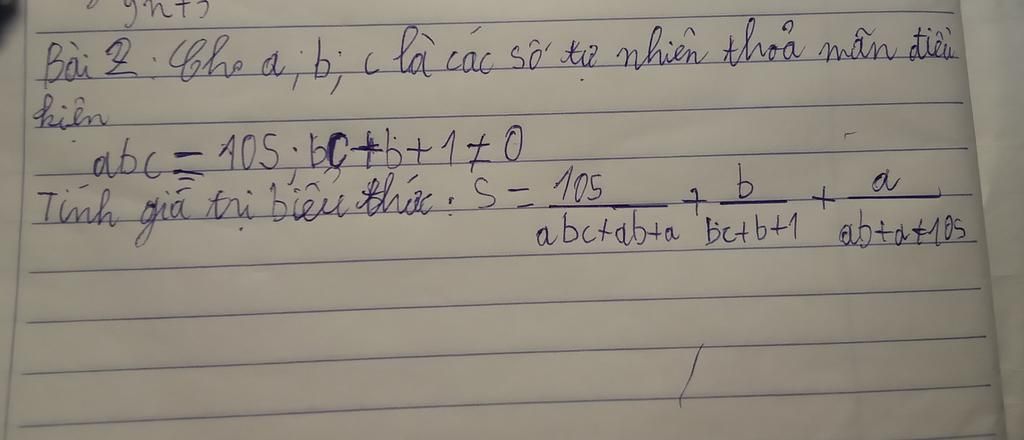 9n+5
Bài 2: Cho a; b; c là các số tự nhiên thoả mãn điều
kiện
abc = 105; bc+b+1≠0
Tính giá trị biểu thức: S = 105/(abc+ab+a) + b/(bc+b+1) + a/(ab+a+105)